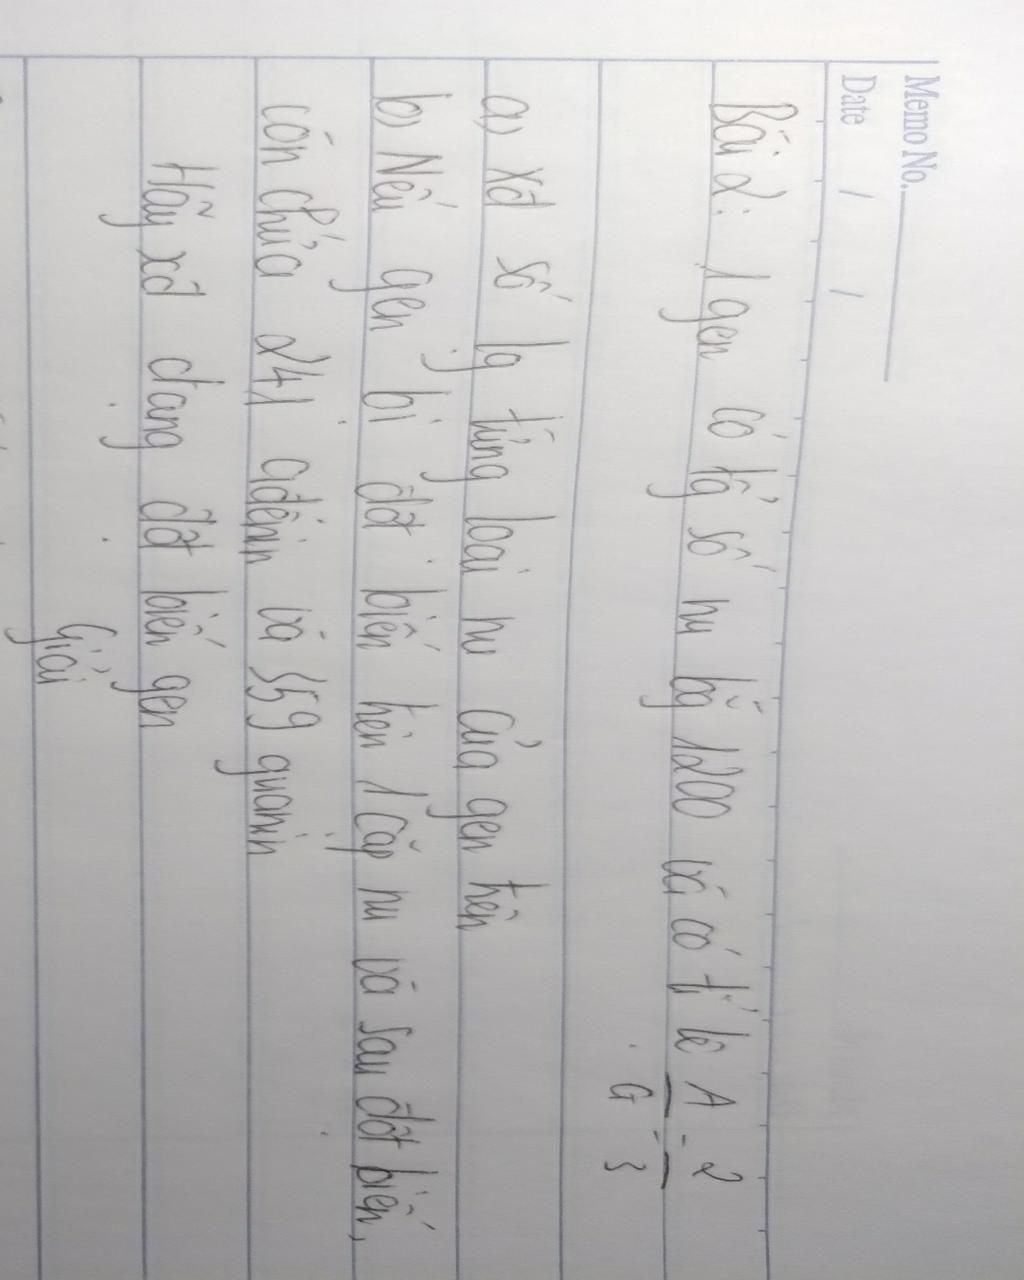 Memo No.
Date / /
Bài 2: 1 gen có tg̉ số nu bg̀ 1200 và có tỉ lệ A/G = 2/3
a, xđ số lg từng loại nu của gen trên
b, Nếu gen bị đột biến trên 1 cặp nu và sau đột biến,
còn chứa 241 ađênin và 359 guanin
Hãy xđ dạng đột biến gen
Giải